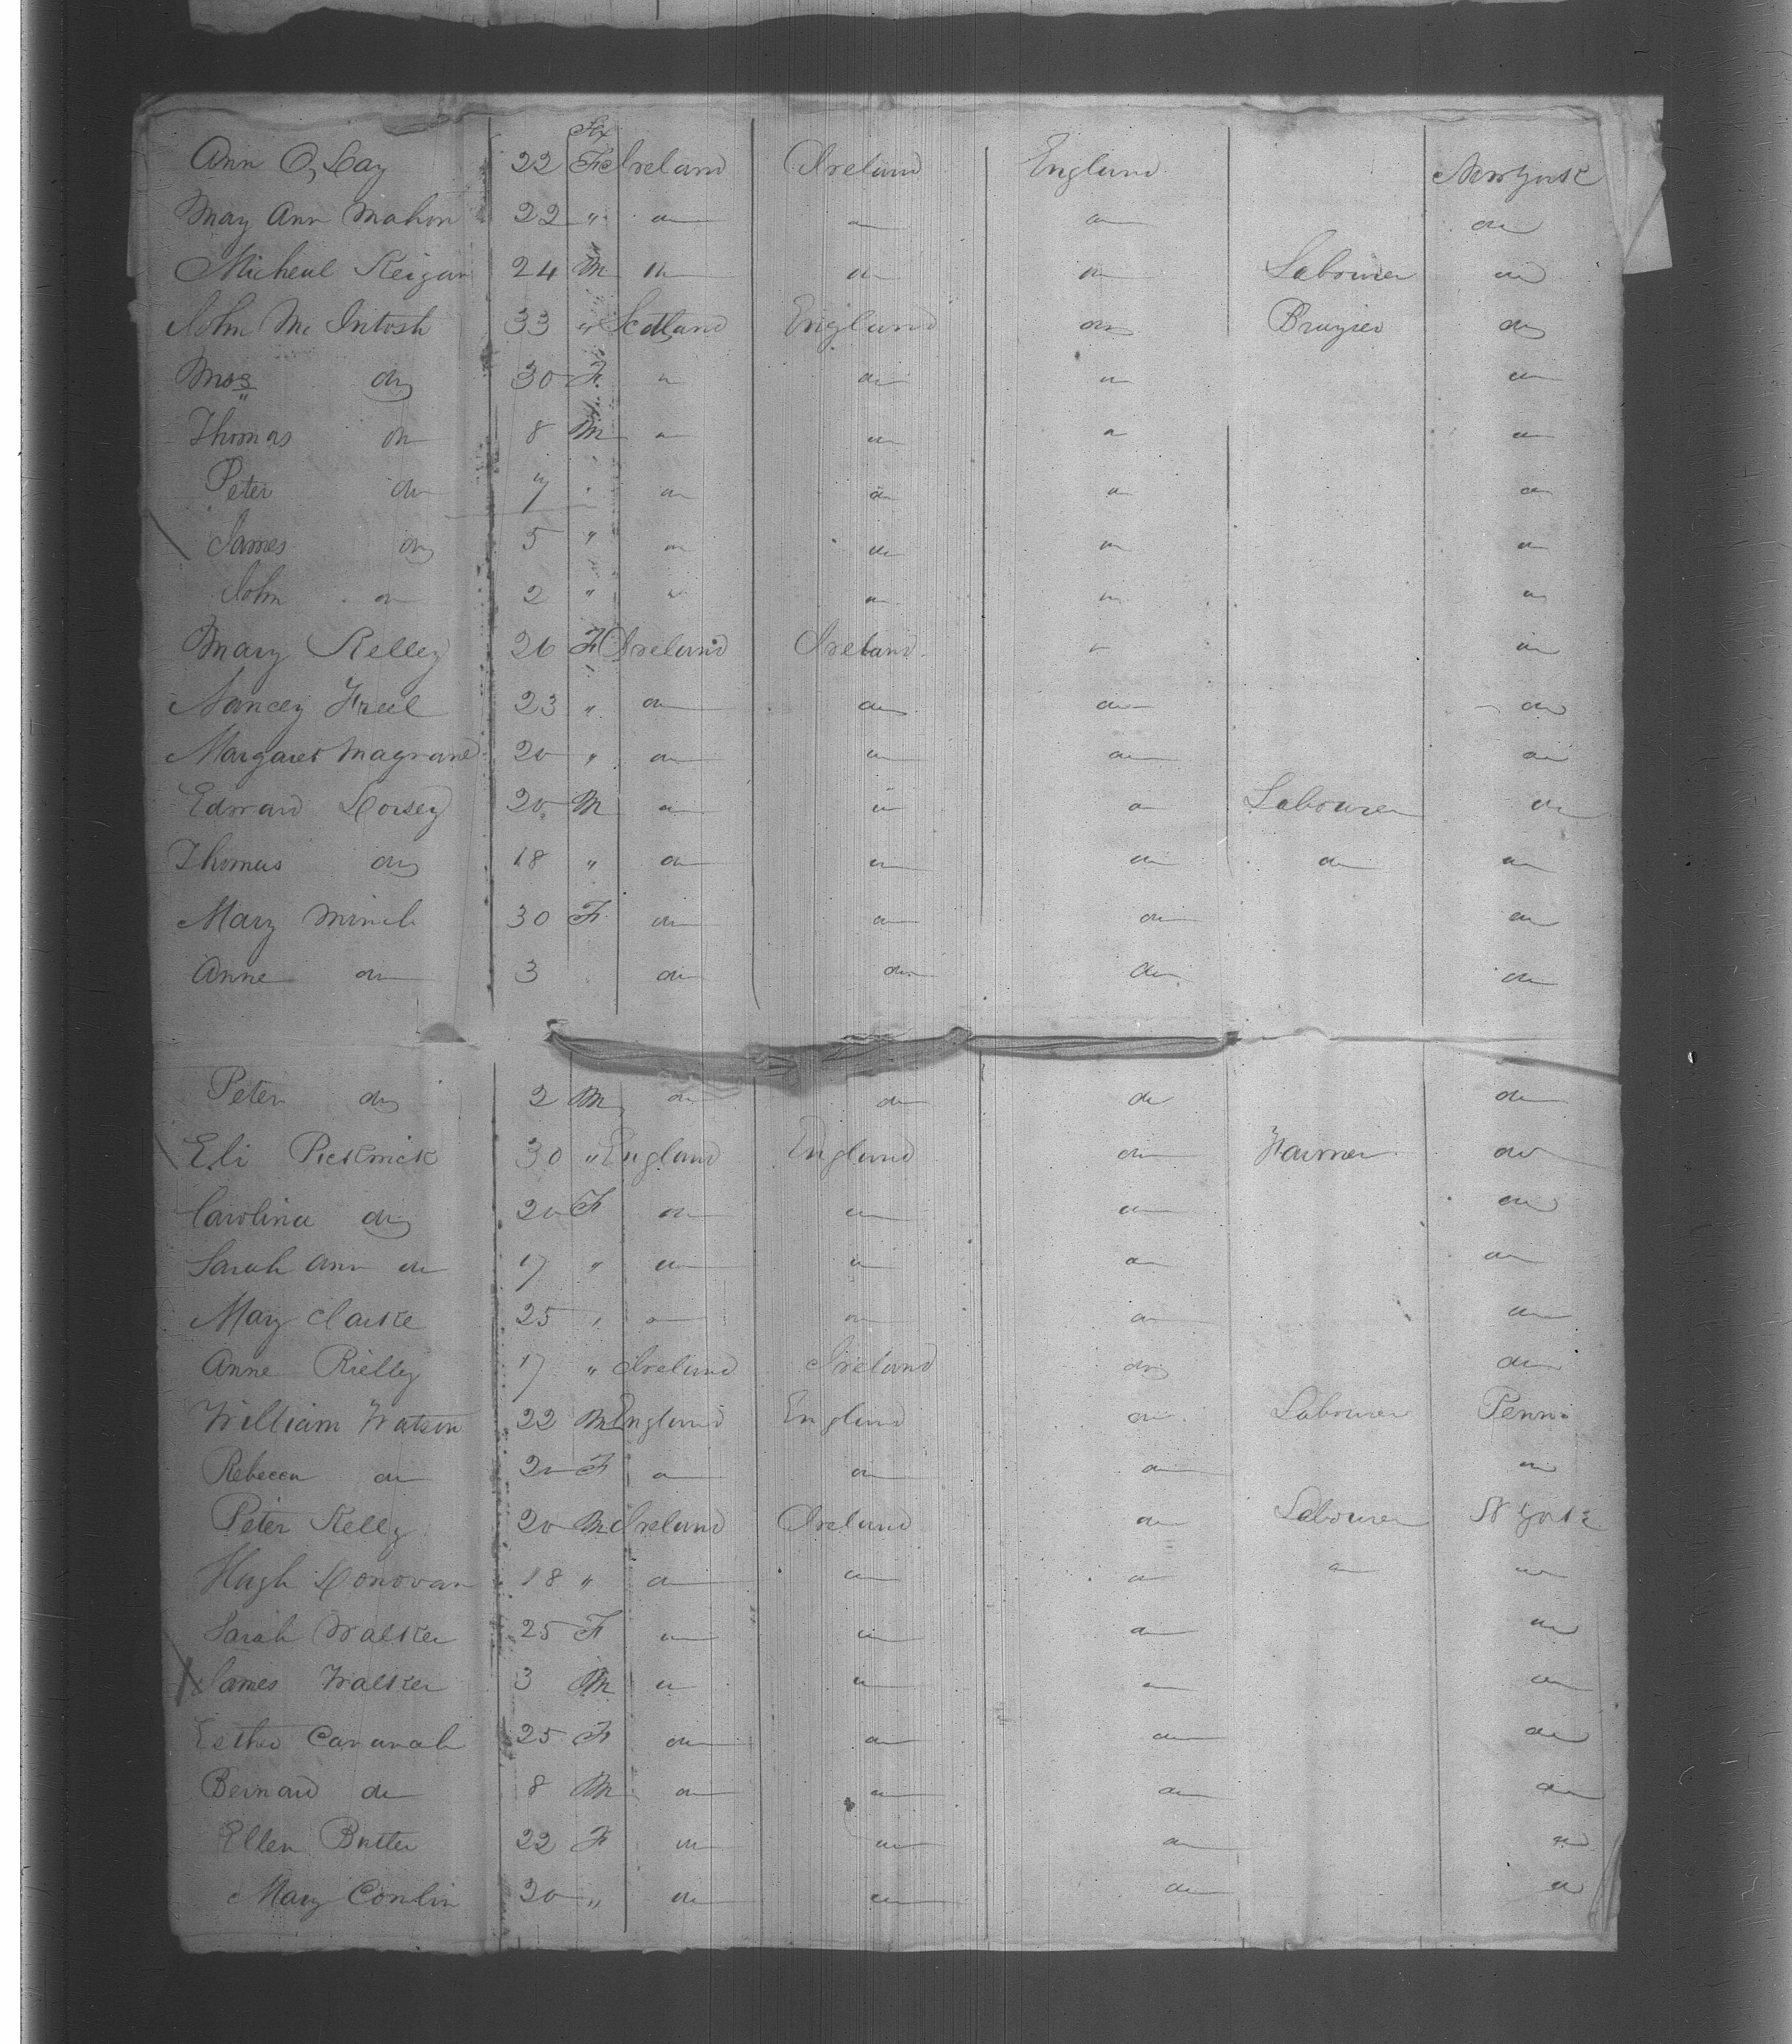 Sex
Ann O, Day 22 Fe Ireland Ireland England New York
May Ann Mahon 22 " do do do do
Micheal Reigan 24 M do do do Labourer do
John Mc Intosh 33 " Scotland England do Brazier do
Mrs do 30 F do do do do
Thomas do 8 M do do do do
Peter do 7 " do do do do
James do 5 " do do do do
John do 2 " do do do do
Mary Kelley 26 F Ireland Ireland do do
Nancey Freel 23 " do do do do
Margaret Magrane 20 " do do do do
Edward Dorsey 20 M do do do Labourer do
Thomas do 18 " do do do do do
Mary 30 F do do do do
Anne do 3 do do do do
Peter do 2 M do do do do
Eli Pickwick 30 " England England do Farmer do
Carolina do 20 F do do do do
Sarah Ann do 17 " do do do do
Mary Clarke 25 " do do do do
Anne Rielly 17 " Ireland Ireland do do
William Watson 22 M England England do Labourer Penn.
Rebecca do 20 F do do do do
Peter Kelly 20 M Ireland Ireland do Labourer N York
Hugh Donovan 18 " do do do do do
Sarah Walker 25 F do do do do
James Walker 3 M do do do do
Esther Cavanah 25 F do do do do
Bernard do 8 M do do do do
Ellen Butler 22 F do do do do
Mary Conlin 20 " do do do do